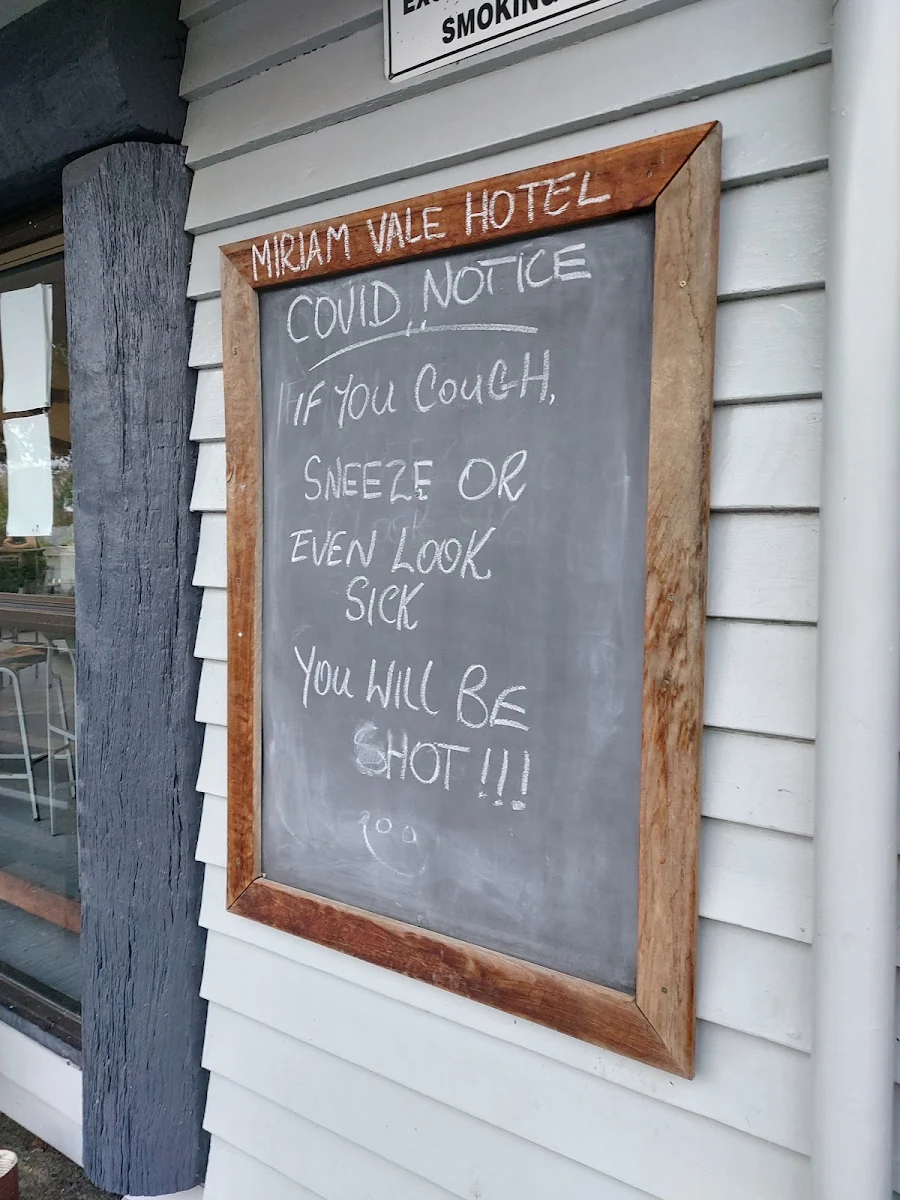 SMOKING
MIRIAM VALE HOTEL
COVID NOTICE
IF YOU COUGH,
SNEEZE OR
EVEN LOOK
SICK
YOU WILL BE
SHOT !!!